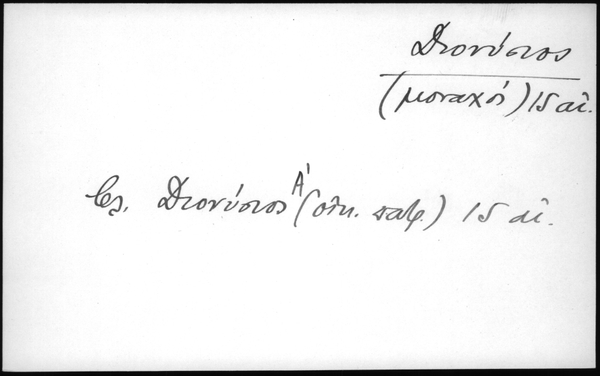 Διονύσιος
(μοναχός) 15 αἰ.
βλ. Διονύσιος Α' (οἰκ. πατρ.) 15 αἰ.